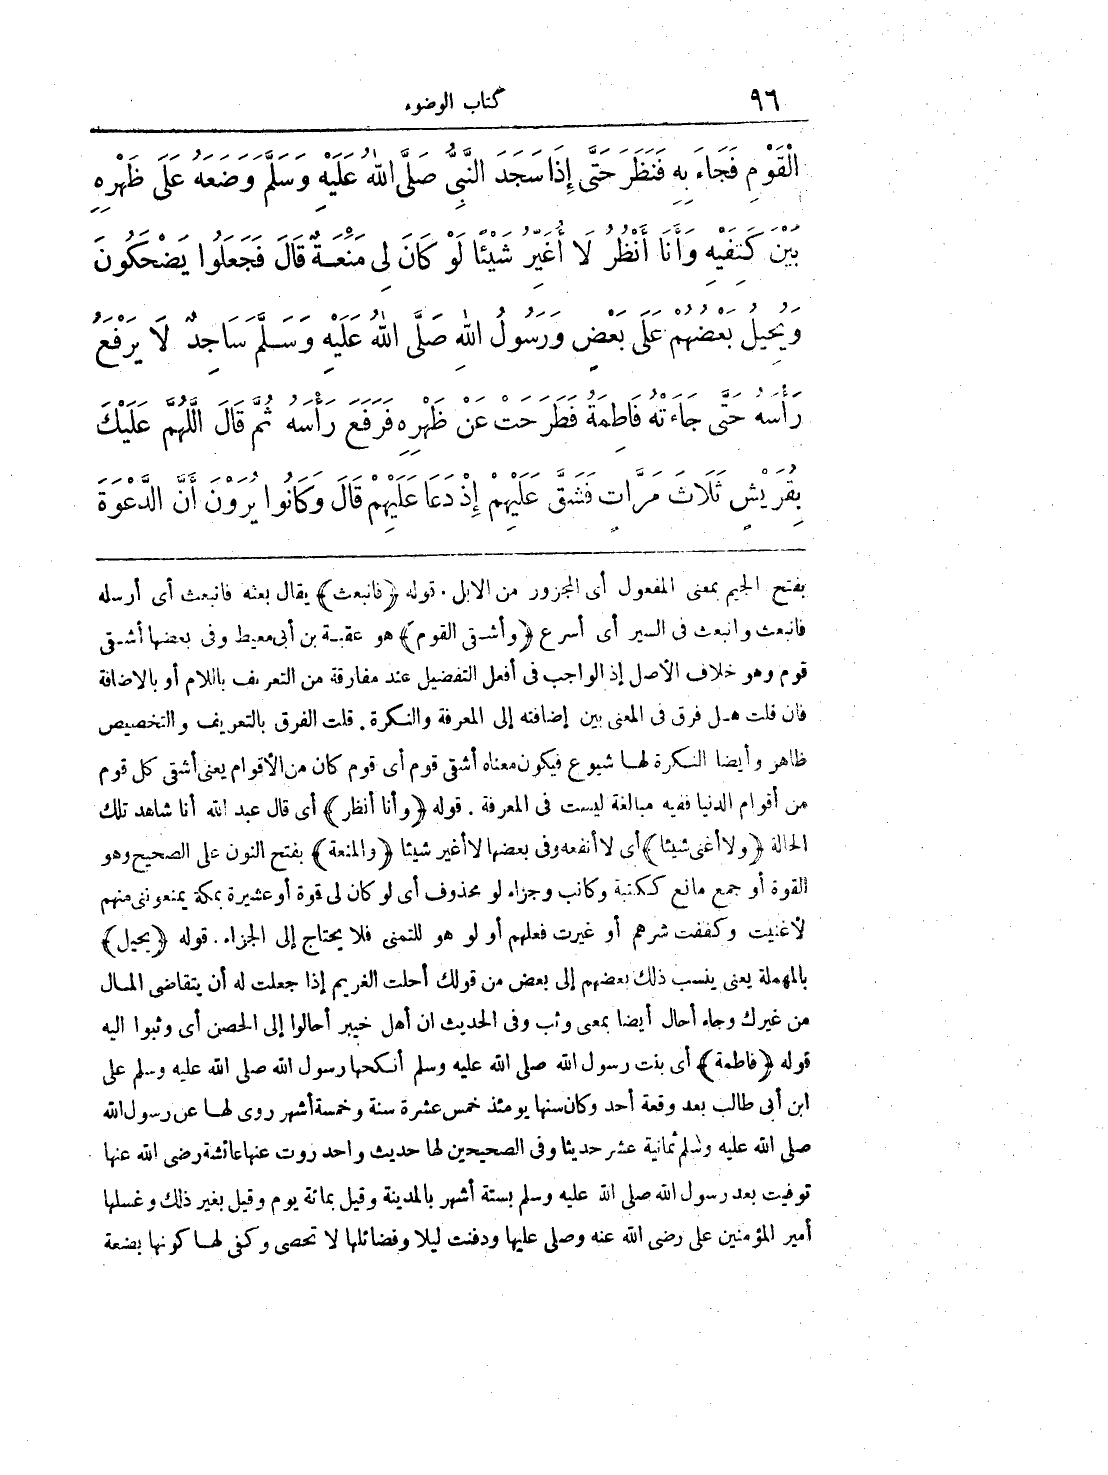 ٩٦ كتاب الوضوء
الْقَوْمِ فَجَاءَ بِهِ فَنَظَرَ حَتَّى إِذَا سَجَدَ النَّبِيُّ صَلَّى اللهُ عَلَيْهِ وَسَلَّمَ وَضَعَهُ عَلَى ظَهْرِهِ
بَيْنَ كَتِفَيْهِ وَأَنَا أَنْظُرُ لَا أُغَيِّرُ شَيْئًا لَوْ كَانَ لِي مَنَعَةٌ قَالَ فَجَعَلُوا يَضْحَكُونَ
وَيُحِيلُ بَعْضُهُمْ عَلَى بَعْضٍ وَرَسُولُ اللهِ صَلَّى اللهُ عَلَيْهِ وَسَلَّمَ سَاجِدٌ لَا يَرْفَعُ
رَأْسَهُ حَتَّى جَاءَتْهُ فَاطِمَةُ فَطَرَحَتْ عَنْ ظَهْرِهِ فَرَفَعَ رَأْسَهُ ثُمَّ قَالَ اللَّهُمَّ عَلَيْكَ
بِقُرَيْشٍ ثَلَاثَ مَرَّاتٍ فَشَقَّ عَلَيْهِمْ إِذْ دَعَا عَلَيْهِمْ قَالَ وَكَانُوا يُرَوْنَ أَنَّ الدَّعْوَةَ
بفتح الجيم بمعنى المفعول أى المجزور من الابل . قوله ﴿فانبعث﴾ يقال بعثه فانبعث أى أرسله
فانبعث وانبعث فى السير أى أسرع ﴿وأشقى القوم﴾ هو عقبة بن أبى معيط وفى بعضها أشقى
قوم وهو خلاف الأصل إذ الواجب فى أفعل التفضيل عند مفارقة من التعريف باللام أو بالاضافة
فان قلت هل فرق فى المعنى بين إضافته إلى المعرفة والنكرة . قلت الفرق بالتعريف والتخصيص
ظاهر وأيضا النكرة لها شيوع فيكون معناه أشقى قوم أى قوم كان من الأقوام يعنى أشقى كل قوم
من أقوام الدنيا ففيه مبالغة ليست فى المعرفة . قوله ﴿وأنا أنظر﴾ أى قال عبد الله أنا شاهد تلك
الحالة ﴿ولا أغنى شيئا﴾ أى لا أنفعه وفى بعضها لا أغير شيئا ﴿والمنعة﴾ بفتح النون على الصحيح وهو
القوة أو جمع مانع ككتبة وكاتب وجزاء لو محذوف أى لو كان لى قوة أو عشيرة بمكة يمنعوننى منهم
لأغنيت وكففت شرهم أو غيرت فعلهم أو لو هو للتمنى فلا يحتاج إلى الجزاء . قوله ﴿يحيل﴾
بالمهملة يعنى ينسب ذلك بعضهم إلى بعض من قولك أحلت الغريم إذا جعلت له أن يتقاضى المال
من غيرك وجاء أحال أيضا بمعنى وثب وفى الحديث ان أهل خيبر أحالوا إلى الحصن أى وثبوا اليه
قوله ﴿فاطمة﴾ أى بنت رسول الله صلى الله عليه وسلم أنكحها رسول الله صلى الله عليه وسلم على
ابن أبى طالب بعد وقعة أحد وكان سنها يومئذ خمس عشرة سنة وخمسة أشهر روى لها عن رسول الله
صلى الله عليه وسلم ثمانية عشر حديثا وفى الصحيحين لها حديث واحد روت عنها عائشة رضى الله عنها
توفيت بعد رسول الله صلى الله عليه وسلم بستة أشهر بالمدينة وقيل بمائة يوم وقيل بغير ذلك وغسلها
أمير المؤمنين على رضى الله عنه وصلى عليها ودفنت ليلا وفضائلها لا تحصى وكفى لها كونها بضعة